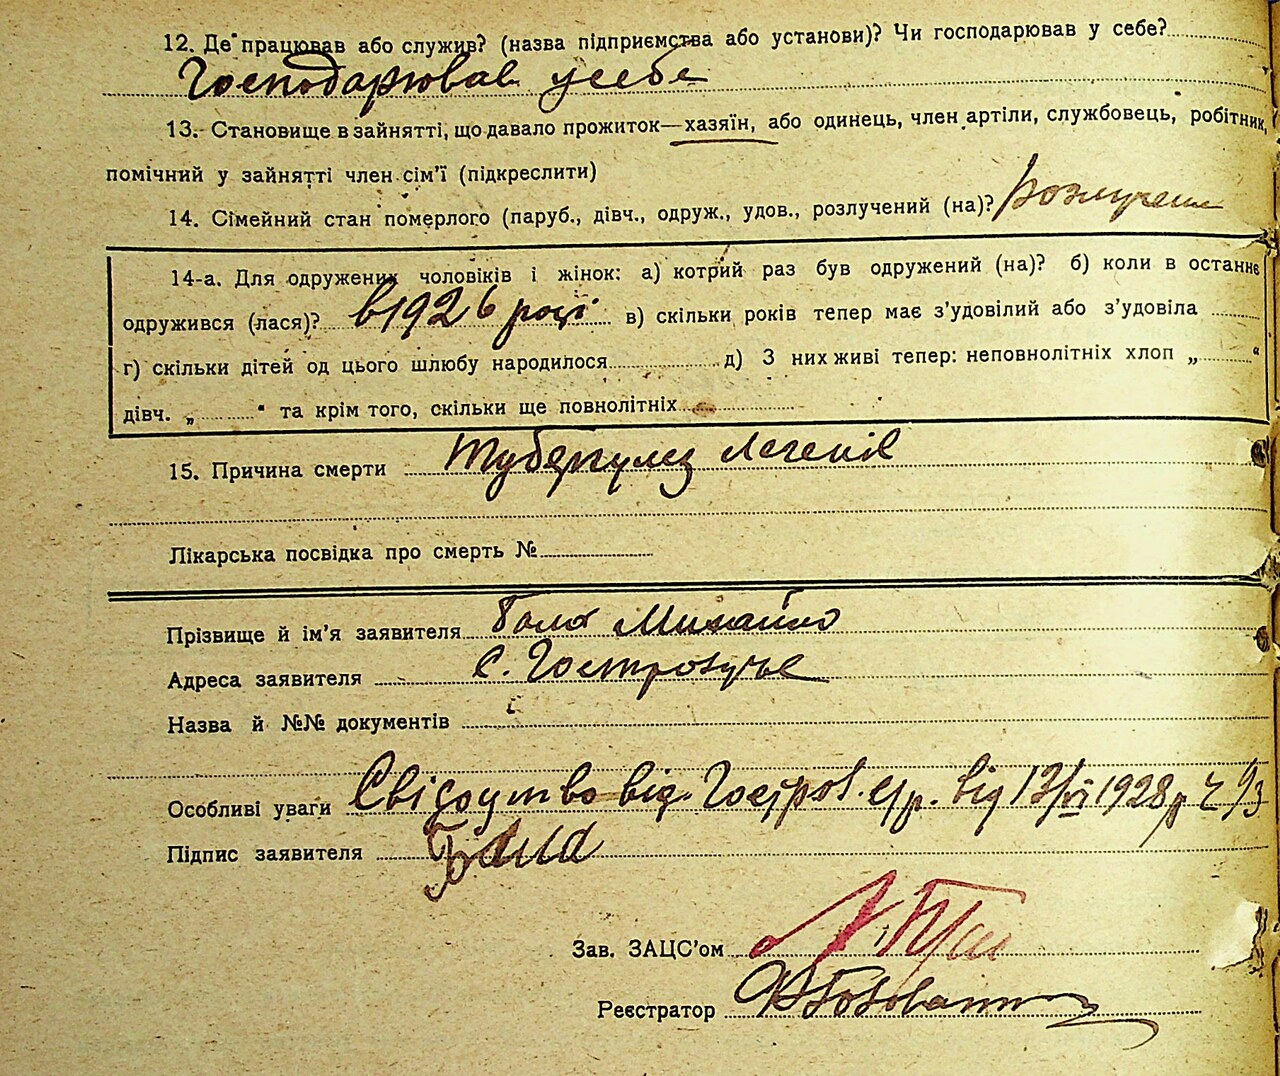 12. Де працював або служив? (назва підприємства або установи)? Чи господарював у себе?
Господарював у себе
13. Становище в зайнятті, що давало прожиток—хазяїн, або одинець, член артіли, службовець, робітник,
помічний у зайнятті член сім'ї (підкреслити)
14. Сімейний стан померлого (паруб., дівч., одруж., удов., розлучений (на)? розлучений
14-а. Для одружених чоловіків і жінок: а) котрий раз був одружений (на)? б) коли в останнє
одружився (лася)? в 1926 році в) скільки років тепер має з'удовілий або з'удовіла
г) скільки дітей од цього шлюбу народилося д) З них живі тепер: неповнолітніх хлоп „ “
дівч. „ “ та крім того, скільки ще повнолітніх
15. Причина смерти Туберкульоз легенів
Лікарська посвідка про смерть №
Прізвище й ім'я заявителя Михайло
Адреса заявителя с.
Назва й №№ документів
Особливі уваги Свідоцтво від с/р. від 12/VI 1928 р ч 93
Підпис заявителя
Зав. ЗАЦС'ом
Реєстратор